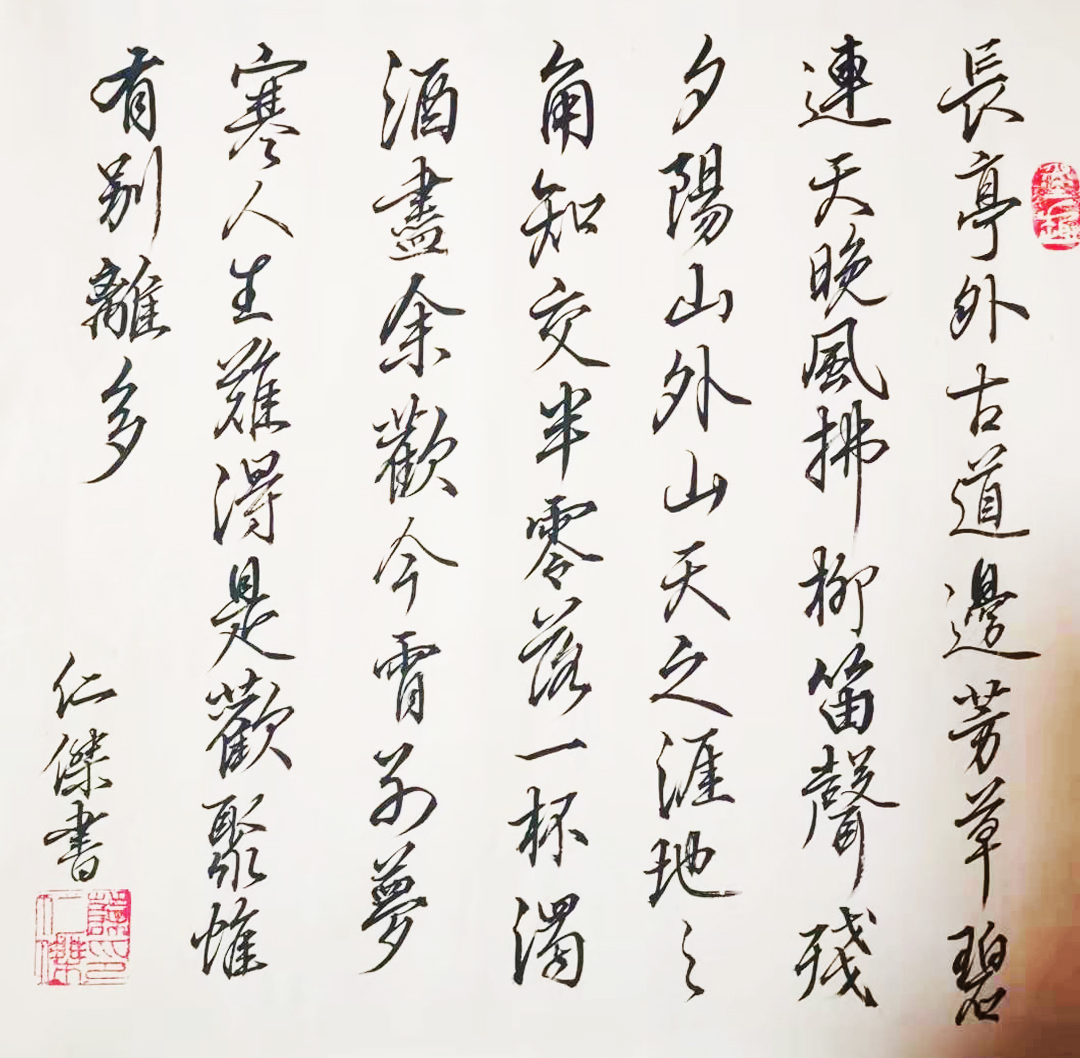 長亭外古道邊芳草碧
連天晚風拂柳笛聲殘
夕陽山外山天之涯地之
角知交半零落一杯濁
酒盡余歡今霄別夢
寒人生難得是歡聚惟
有别離多
仁傑書